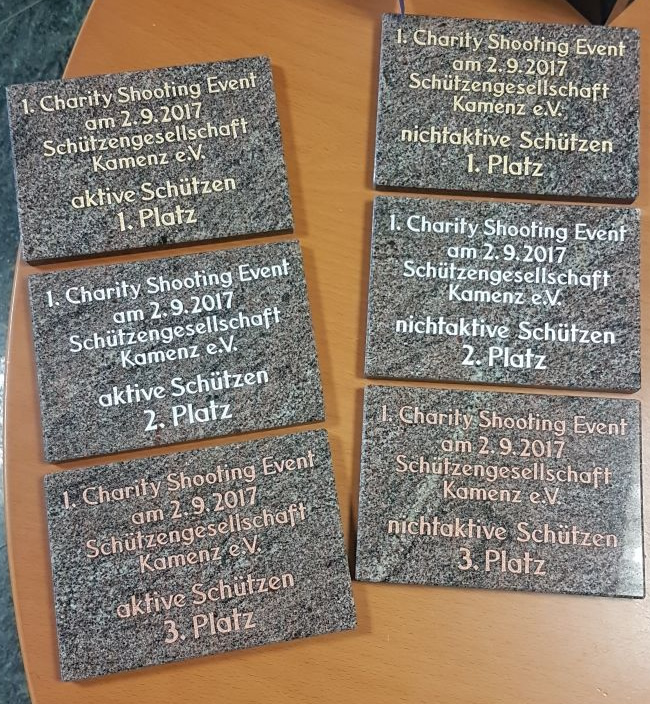 1. Charity Shooting Event
am 2.9.2017
Schützengesellschaft
Kamenz e.V.
aktive Schützen
1. Platz
1. Charity Shooting Event
am 2.9.2017
Schützengesellschaft
Kamenz e.V.
aktive Schützen
2. Platz
1. Charity Shooting Event
am 2.9.2017
Schützengesellschaft
Kamenz e.V.
aktive Schützen
3. Platz
1. Charity Shooting Event
am 2.9.2017
Schützengesellschaft
Kamenz e.V.
nichtaktive Schützen
1. Platz
1. Charity Shooting Event
am 2.9.2017
Schützengesellschaft
Kamenz e.V.
nichtaktive Schützen
2. Platz
1. Charity Shooting Event
am 2.9.2017
Schützengesellschaft
Kamenz e.V.
nichtaktive Schützen
3. Platz